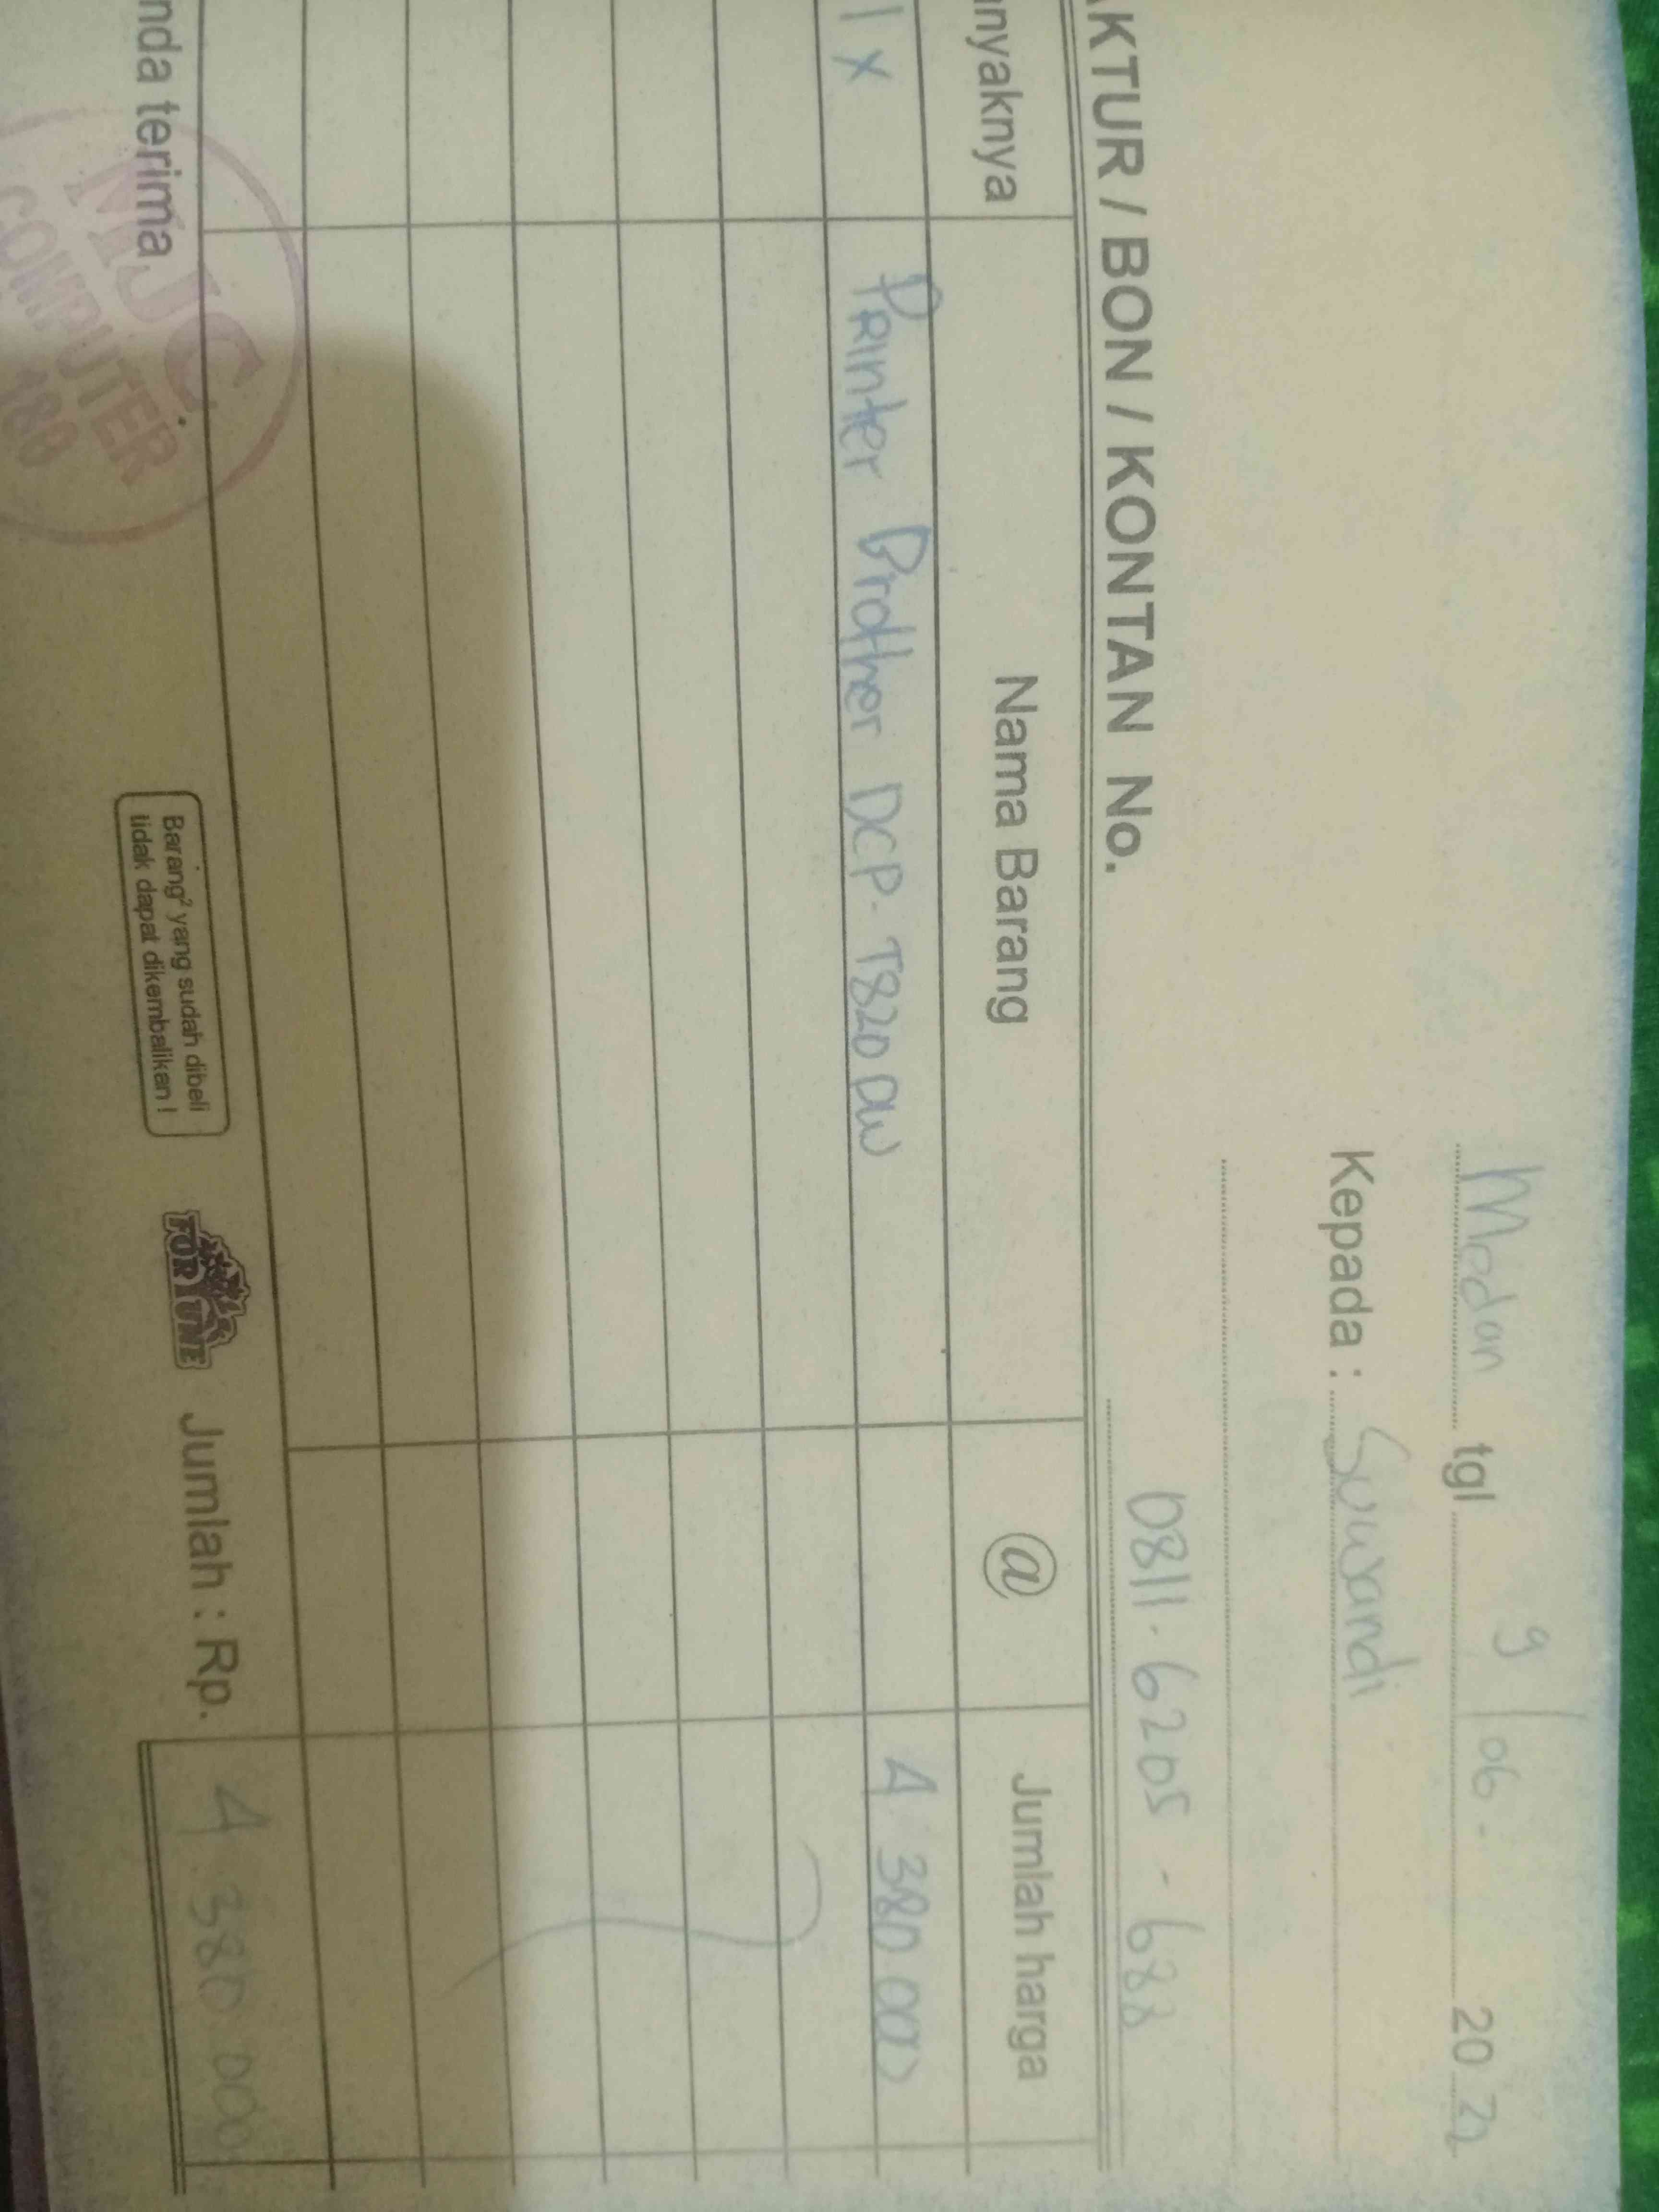 Medan tgl 9/06-2022
Kepada : Suwandi
0811-6205-688
AKTUR / BON / KONTAN No.
nyaknya Nama Barang @ Jumlah harga
1x Printer Brother DCP-T820DW 4 380 000
nda terima
Barang² yang sudah dibeli
tidak dapat dikembalikan !
FORTUNE
Jumlah : Rp. 4 380 000
COMPUTER
188